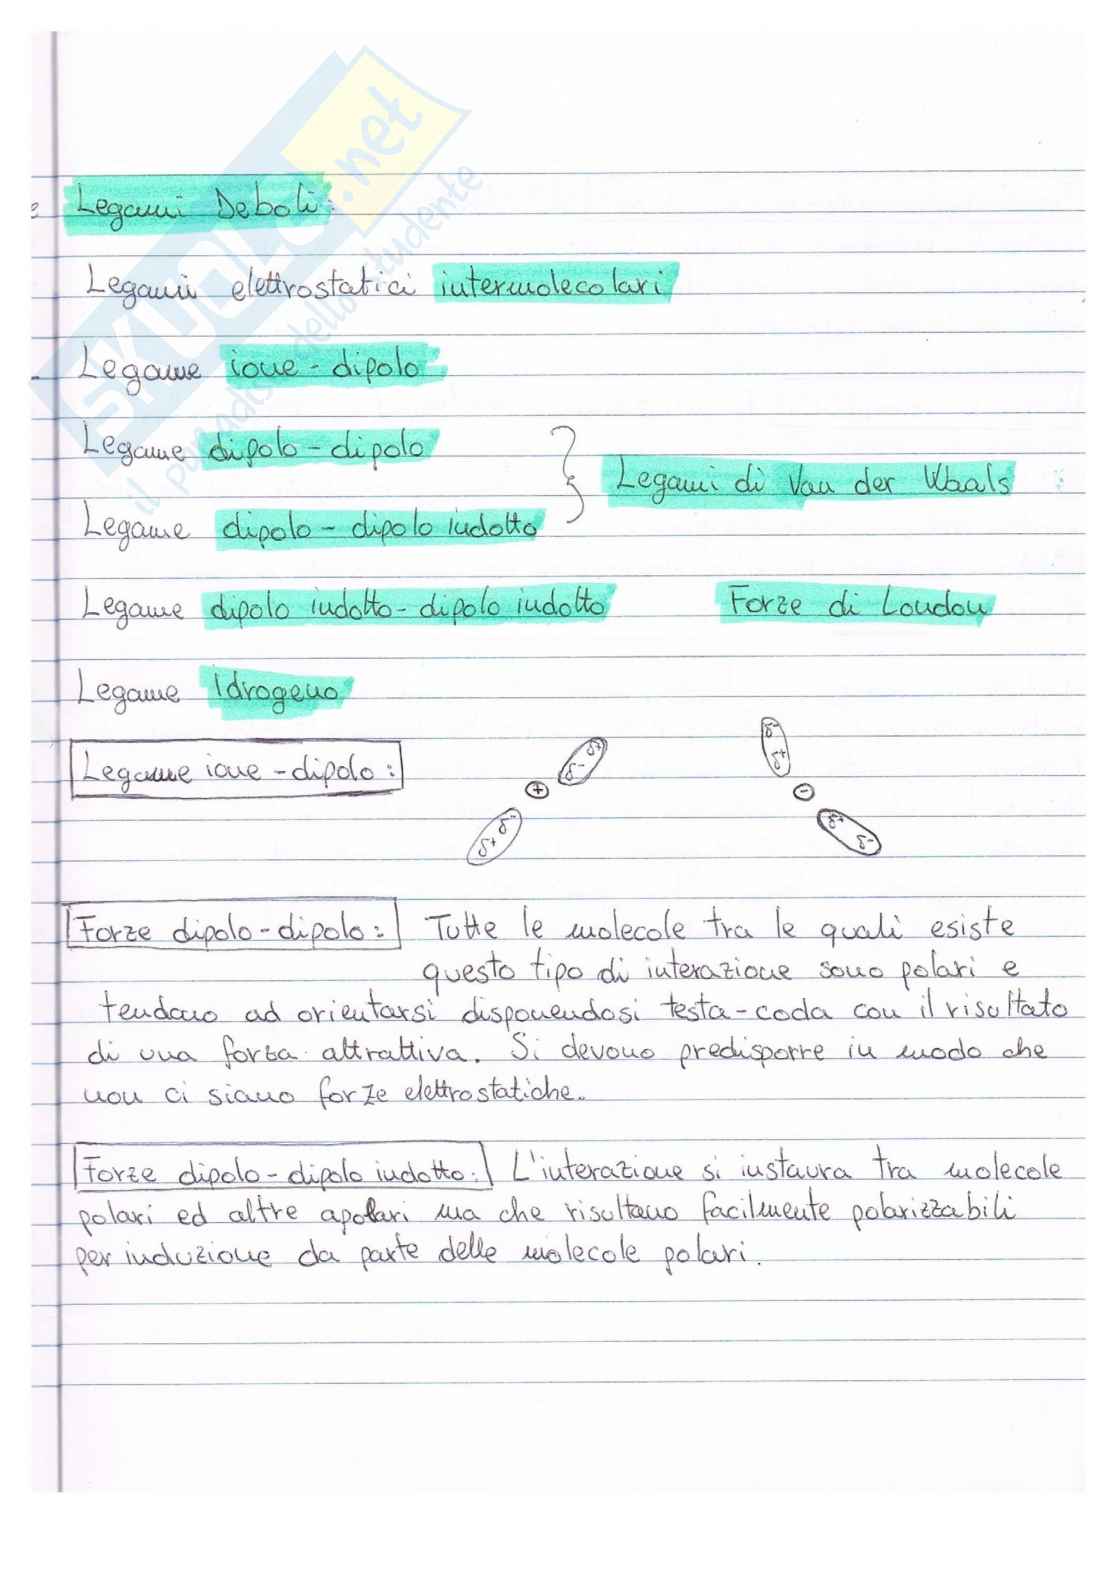 Legami Deboli:
Legami elettrostatici intermolecolari
Legame ione-dipolo
Legame dipolo-dipolo
Legami di Van der Waals
Legame dipolo-dipolo indotto
Legame dipolo indotto-dipolo indotto Forze di London
Legame Idrogeno
Legame ione-dipolo:
+ δ- δ+
δ+ δ-
- δ- δ+
δ+ δ-
Forze dipolo-dipolo: Tutte le molecole tra le quali esiste
questo tipo di interazione sono polari e
tendano ad orientarsi disponendosi testa-coda con il risultato
di una forza attrattiva. Si devono predisporre in modo che
non ci siano forze elettrostatiche.
Forze dipolo-dipolo indotto: L'interazione si instaura tra molecole
polari ed altre apolari ma che risultano facilmente polarizzabili
per induzione da parte delle molecole polari.
SKUOLA.net
il paradiso dello studente